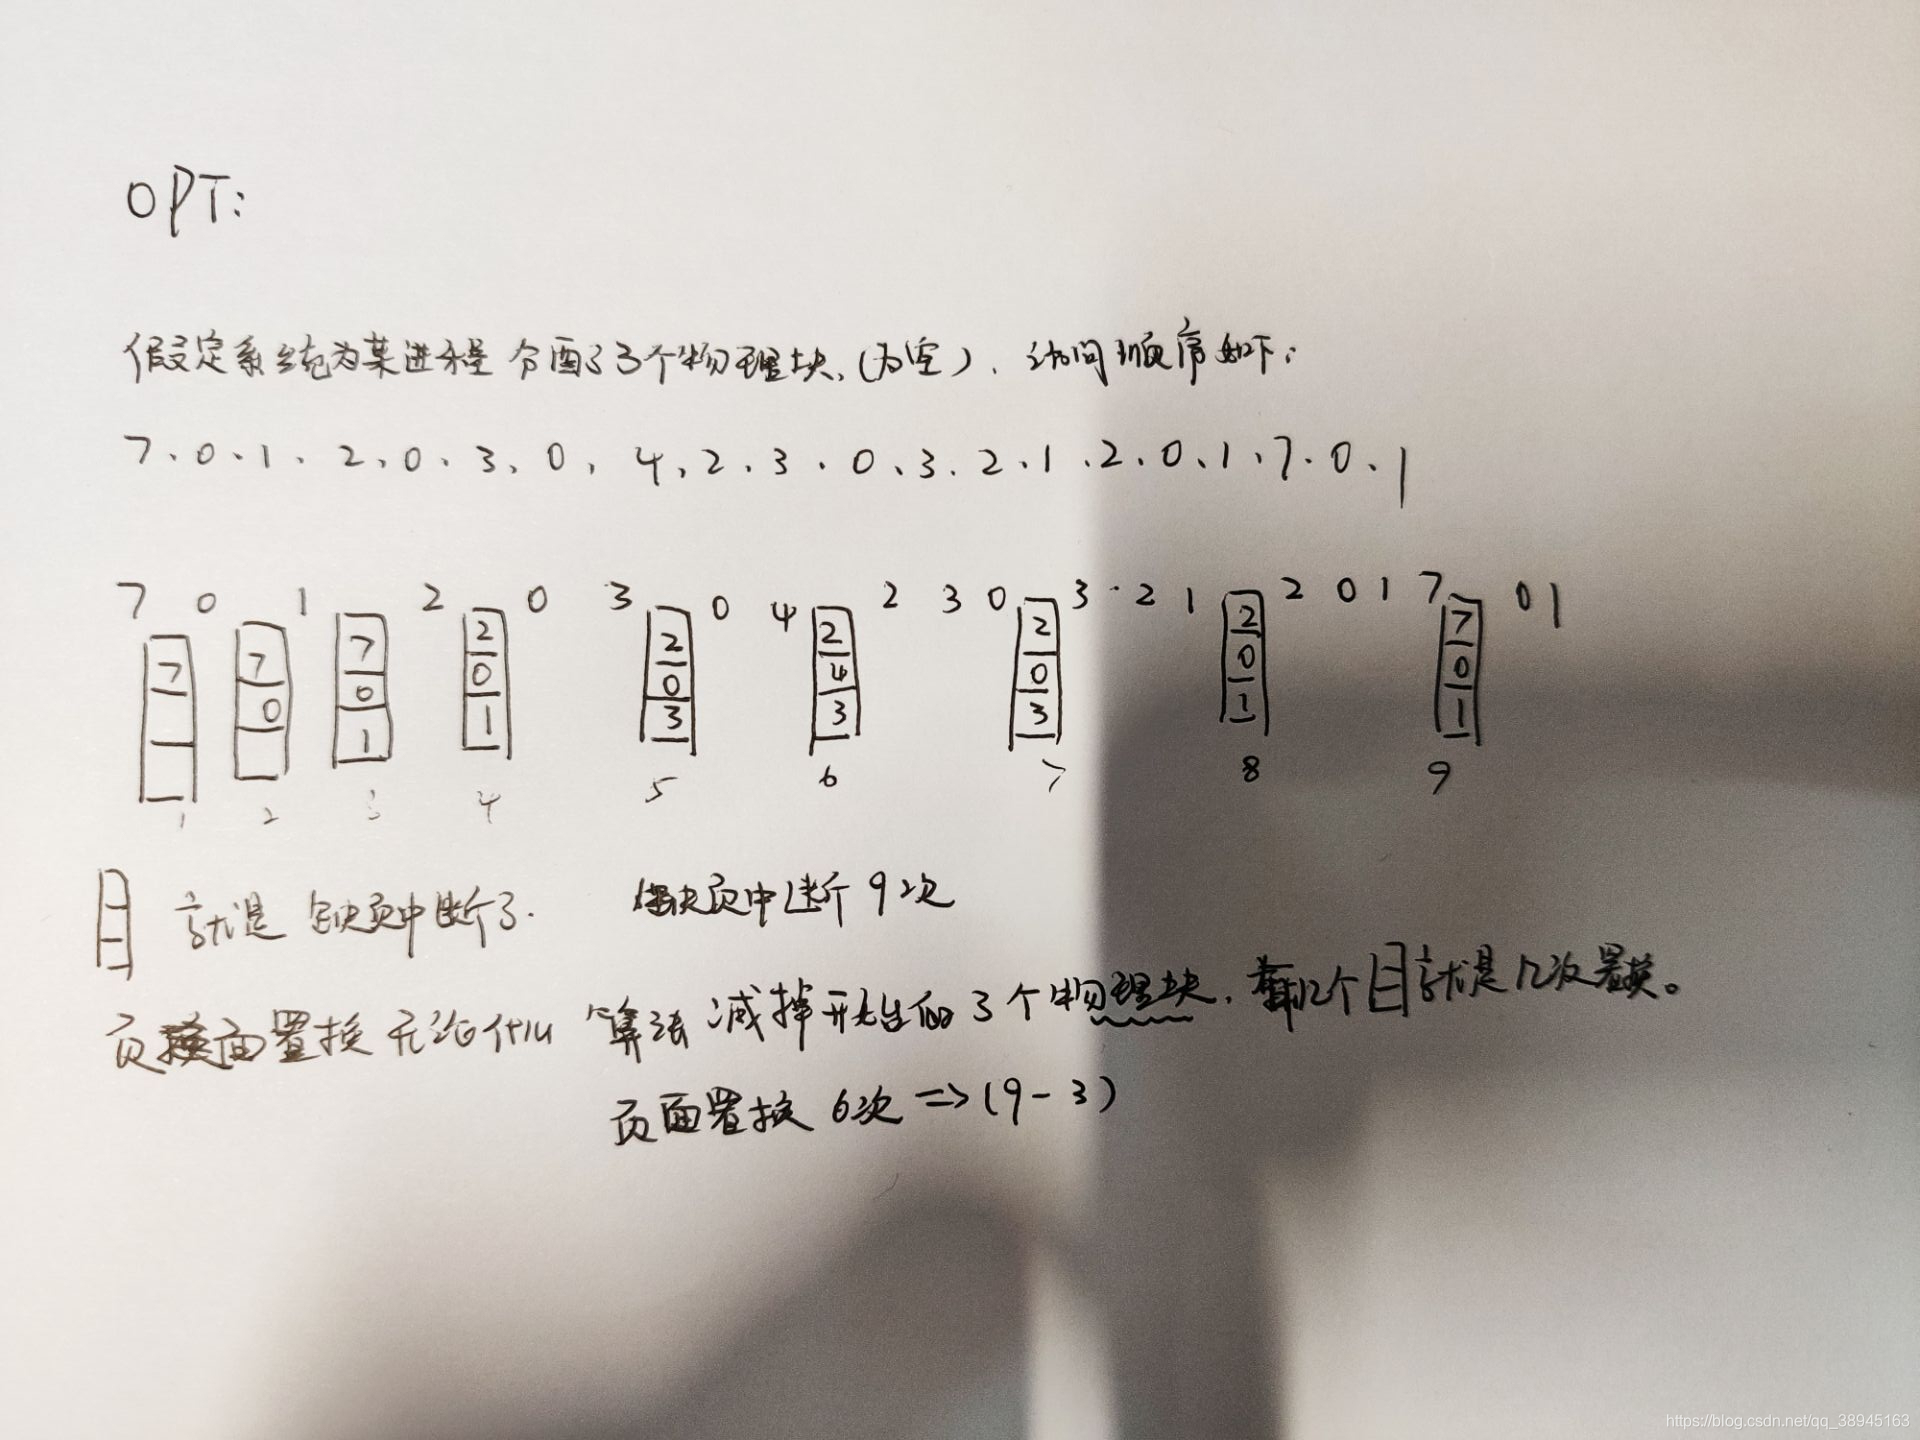 OPT:
假设定系统为某进程分配了3个物理块、(为空)、访问顺序如下:
7、0、1、2、0、3、0、4、2、3、0、3、2、1、2、0、1、7、0、1
7 0 1 2 0 3 0 4 2 3 0 3 2 1 2 0 1 7 0 1
7 7 7 2 2 2 2 2 7
0 0 0 0 4 0 0 0
1 1 3 3 3 1 1
1 2 3 4 5 6 7 8 9
就是缺页中断了. 缺页中断 9次
页面置换无论什么算法减掉开始的3个物理块,有几个就是几次置换。
页面置换 6次 => (9-3)
https://blog.csdn.net/qq_38945163